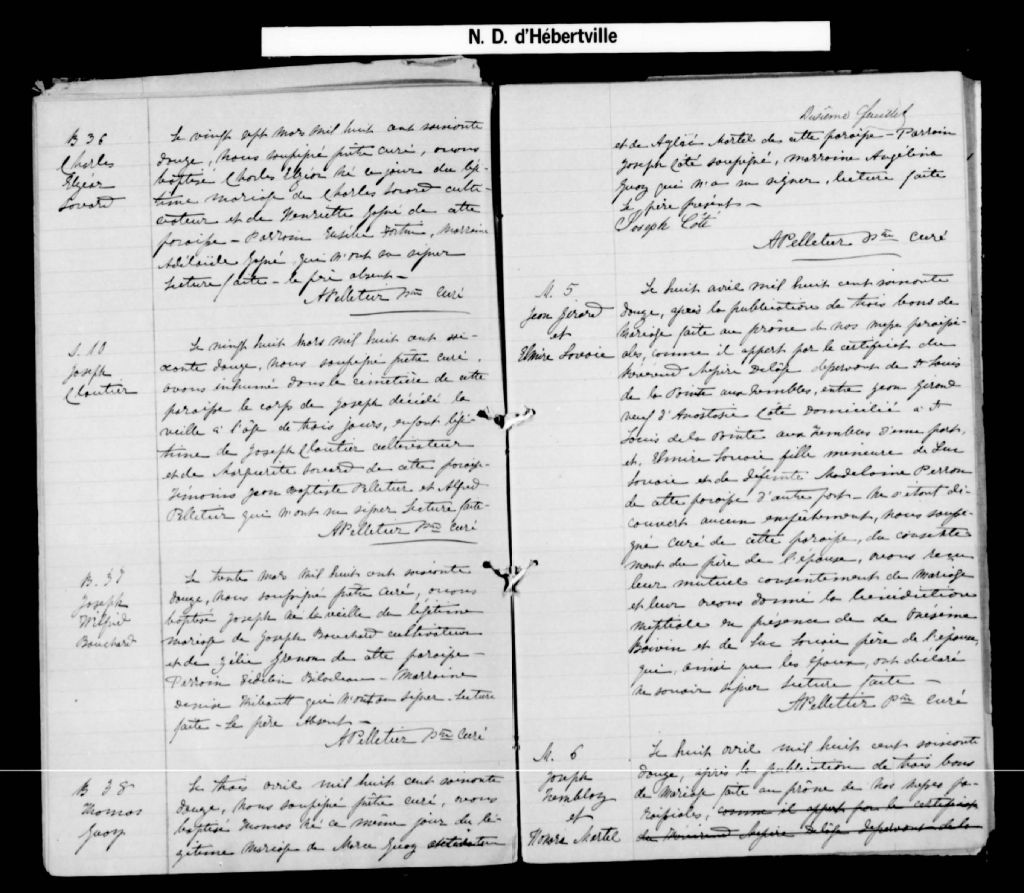 N. D. d'Hébertville
B 36
Charles
Elzéar
Sovard
Le vingt sept mars mil huit cent soixante
douze, Nous soussigné prêtre curé, avons
baptisé Charles Elzéar né ce jour du légi-
time mariage de Charles Sovard culti-
vateur et de Henriette Gagné de cette
paroisse – Parrain Marraine
Adélaïde Gagné qui n'ont su signer
Lecture faite – le père absent –
APelletier Ptre Curé
S. 10
Joseph
Cloutier
Le vingt huit mars mil huit cent soi-
xante douze, nous soussigné prêtre curé,
avons inhumé dans le cimetière de cette
paroisse le corps de Joseph décédé la
veille à l'âge de trois jours, enfant légi-
time de Joseph Cloutier cultivateur
et de Marguerite Sovard de cette paroisse
Témoins Jean Baptiste Pelletier et Alfred
Pelletier qui n'ont su signer Lecture faite –
APelletier Ptre Curé
B. 37
Joseph
Wilfrid
Bouchard
Le trente mars mil huit cent soixante
douze, nous soussigné prêtre curé, avons
baptisé Joseph né la veille du légitime
mariage de Joseph Bouchard cultivateur
et de Zélie Grenon de cette paroisse –
Parrain Bilodeau – Marraine
Denise Thibault qui n'ont su signer. Lecture
faite – Le père absent –
APelletier Ptre Curé
B 38
Thomas
Guay
Le trois avril mil huit cent soixante
douze, nous soussigné prêtre curé, avons
baptisé Thomas né ce même jour du lé-
gitime mariage de Marce Guay cultivateur
Deuxième feuillet
et de Aglaé Martel de cette paroisse – Parrain
Joseph Côté soussigné, marraine Angélina
Guay qui n'a su signer, lecture faite
Le père présent –
Joseph Côté
APelletier Ptre Curé
M. 5
Jean Girard
et
Elmire Savoie
Le huit avril mil huit cent soixante
douze, après la publication de trois bans de
mariage faite au prône de nos messes paroissi-
ales, comme il appert par le certificat du
Révérend Messire Delâge desservant de St Louis
de la Pointe aux Trembles, entre Jean Girard
veuf d'Anastasie Côté domicilié à St
Louis de la Pointe aux Trembles d'une part,
et, Elmire Savoie fille mineure de Luc
Savoie et de défunte Madelaine Perron
de cette paroisse d'autre part – Ne s'étant dé-
couvert aucun empêchement, nous soussi-
gné curé de cette paroisse, du consente-
ment du père de l'épouse, avons reçu
leur mutuel consentement de mariage
et leur avons donné la bénédiction
nuptiale en présence de de Onésime
Boivin et de Luc Savoie père de l'épouse,
qui, ainsi que les époux, ont déclaré
ne savoir signer Lecture faite –
APelletier Ptre Curé
M. 6
Joseph
Tremblay
et
Honora Martel
Le huit avril mil huit cent soixante
douze, après la publication de trois bans
de mariage faite au prône de nos messes pa-
roissiales, comme il appert par le certificat
du Révérend Messire Delâge desservant de la